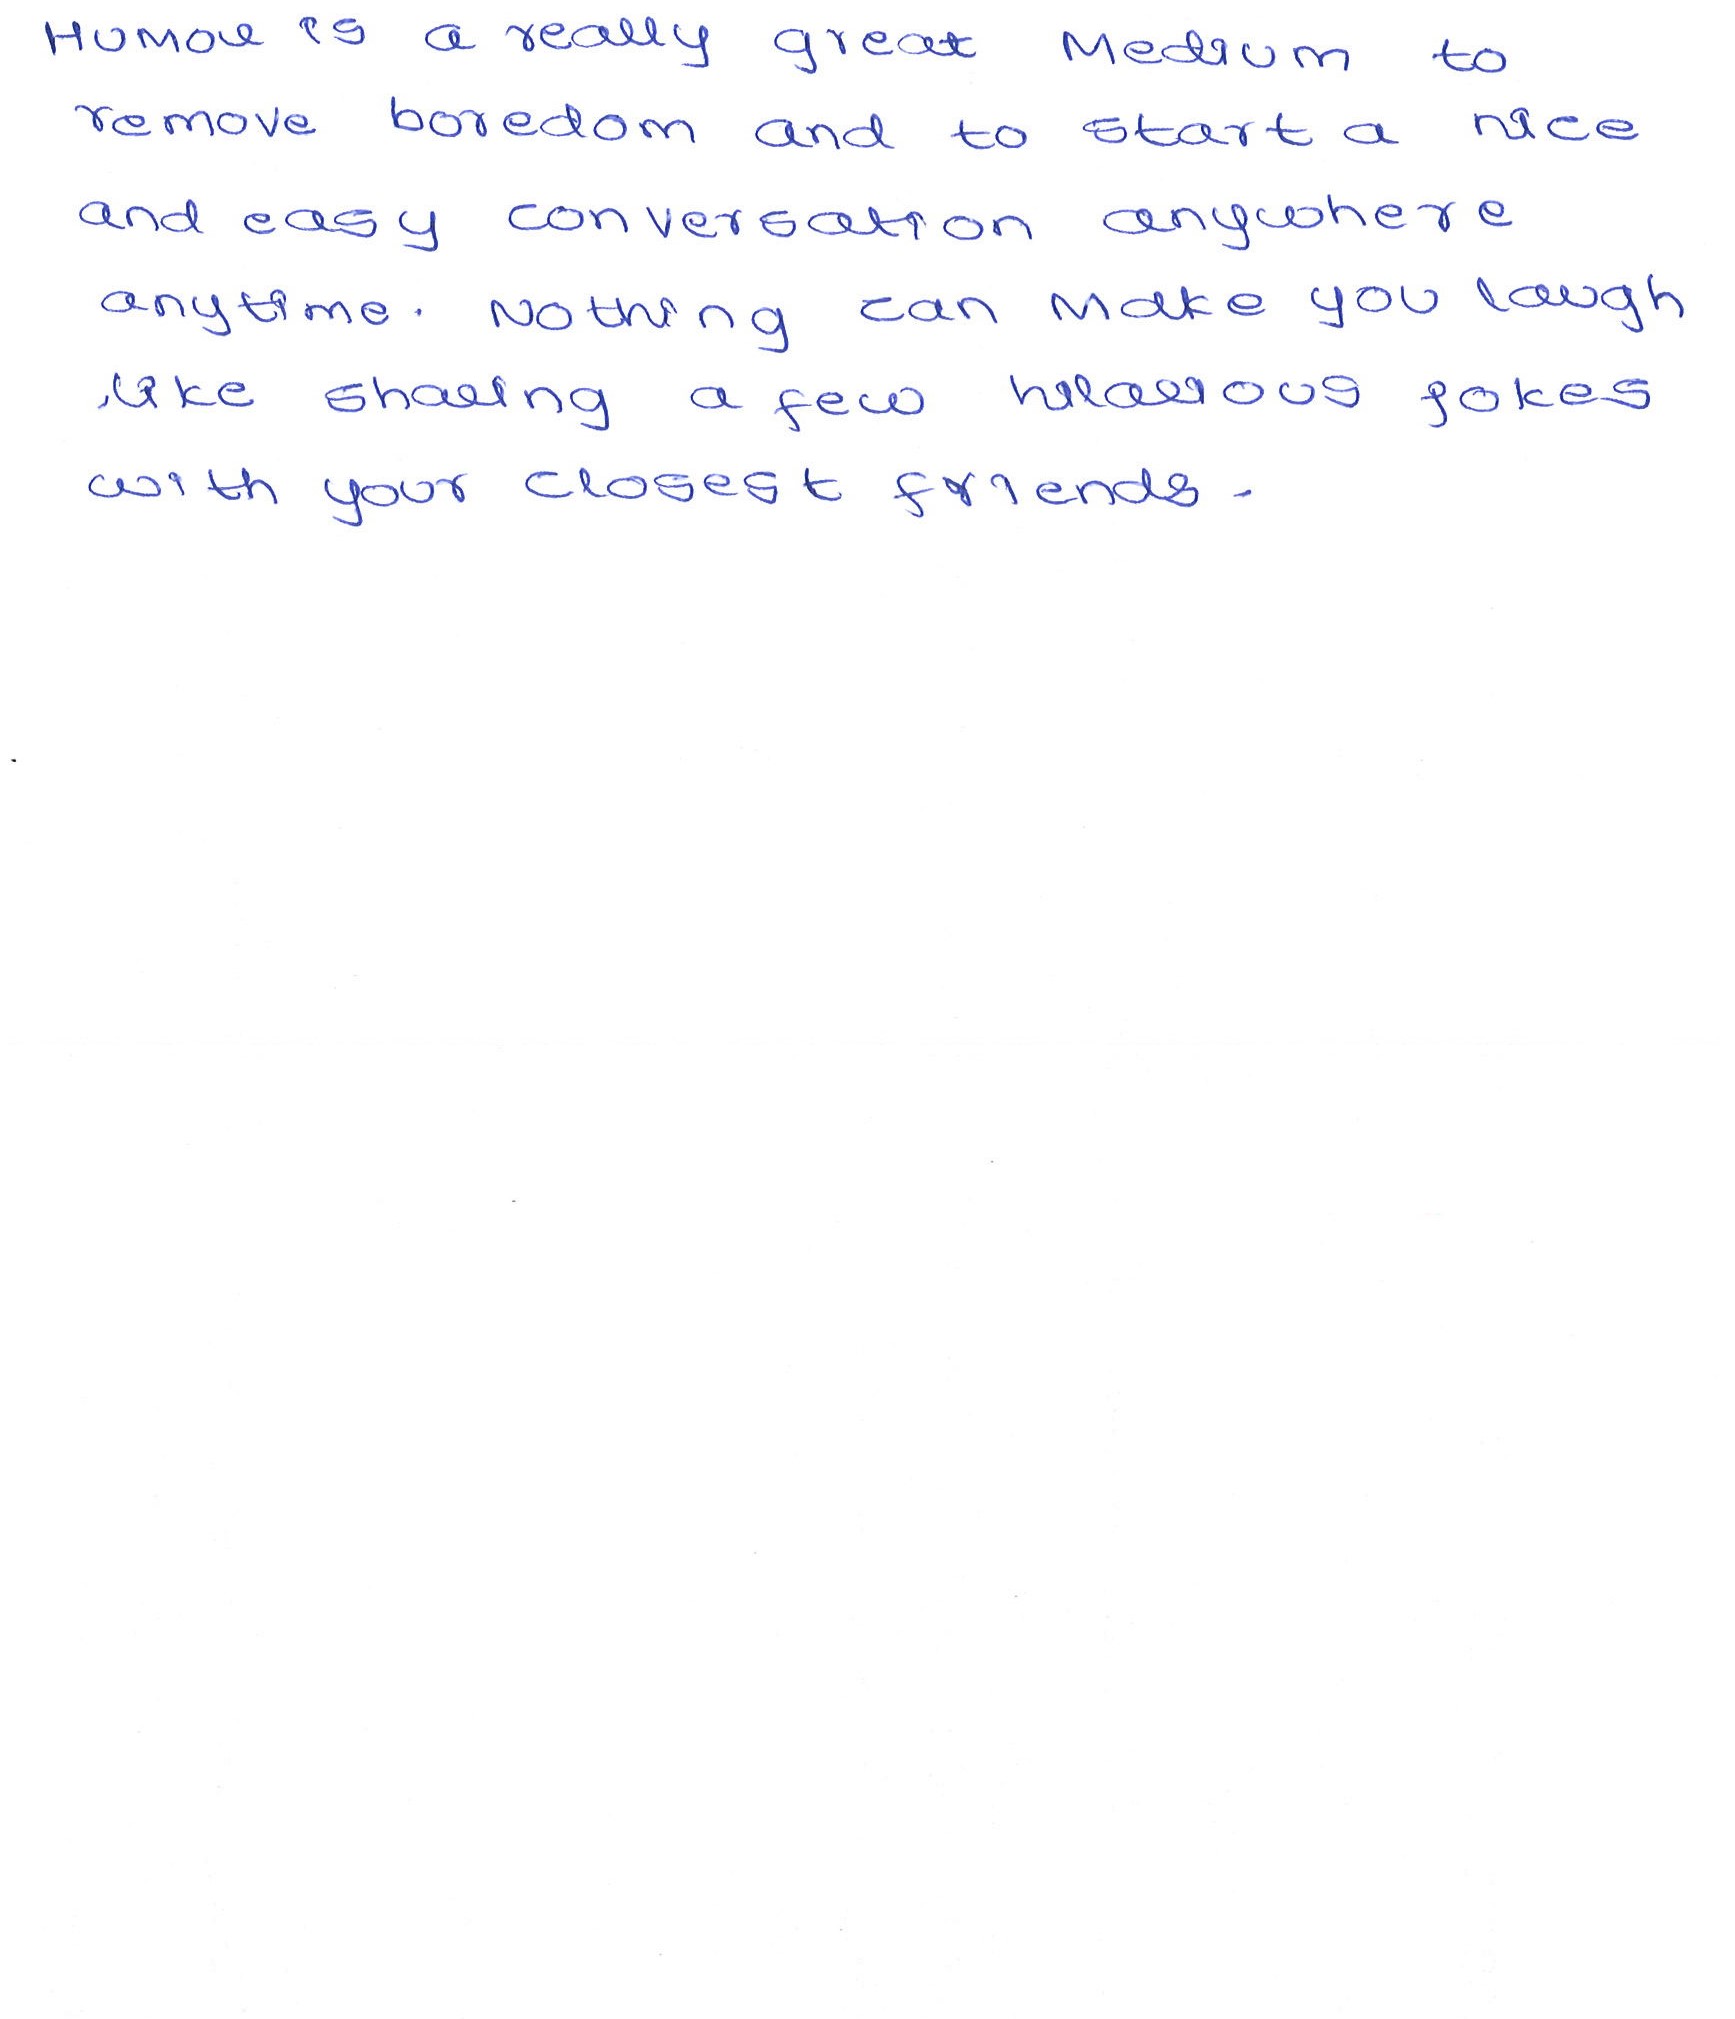 Humor is a really great Medium to
remove boredom and to start a nice
and easy conversation anywhere
anytime. Nothing can Make you laugh
like sharing a few hilarious jokes
with your closest friends.